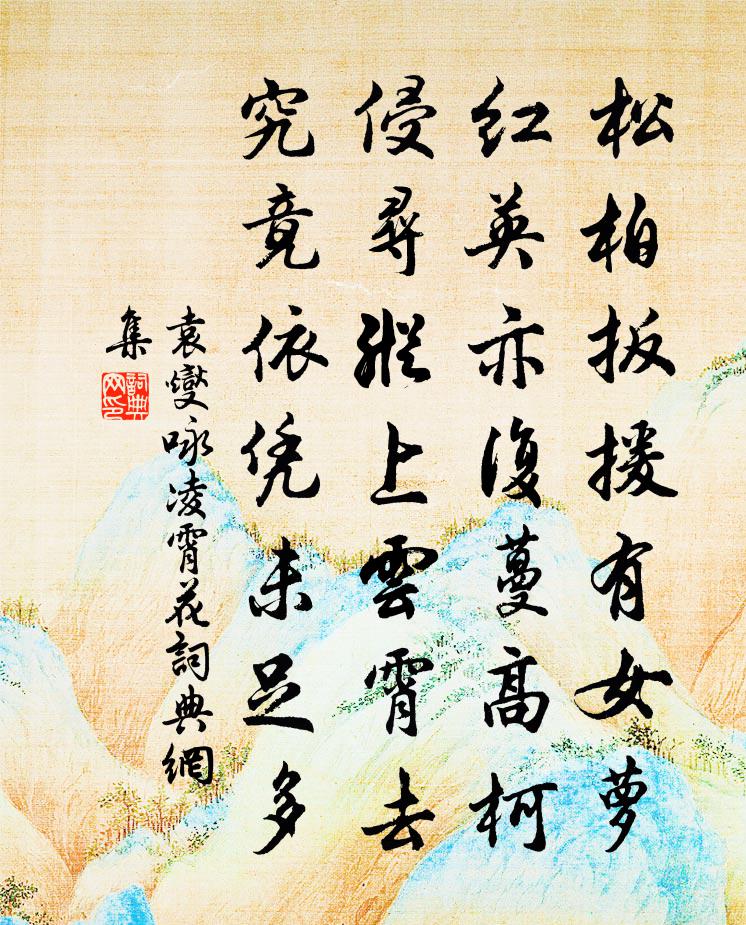 松柏扳援有女萝
红英亦復蔓高柯
侵尋縱上雲霄去
究竟依凭未足多
袁燮咏凌霄花詞典網
集
詞典網印